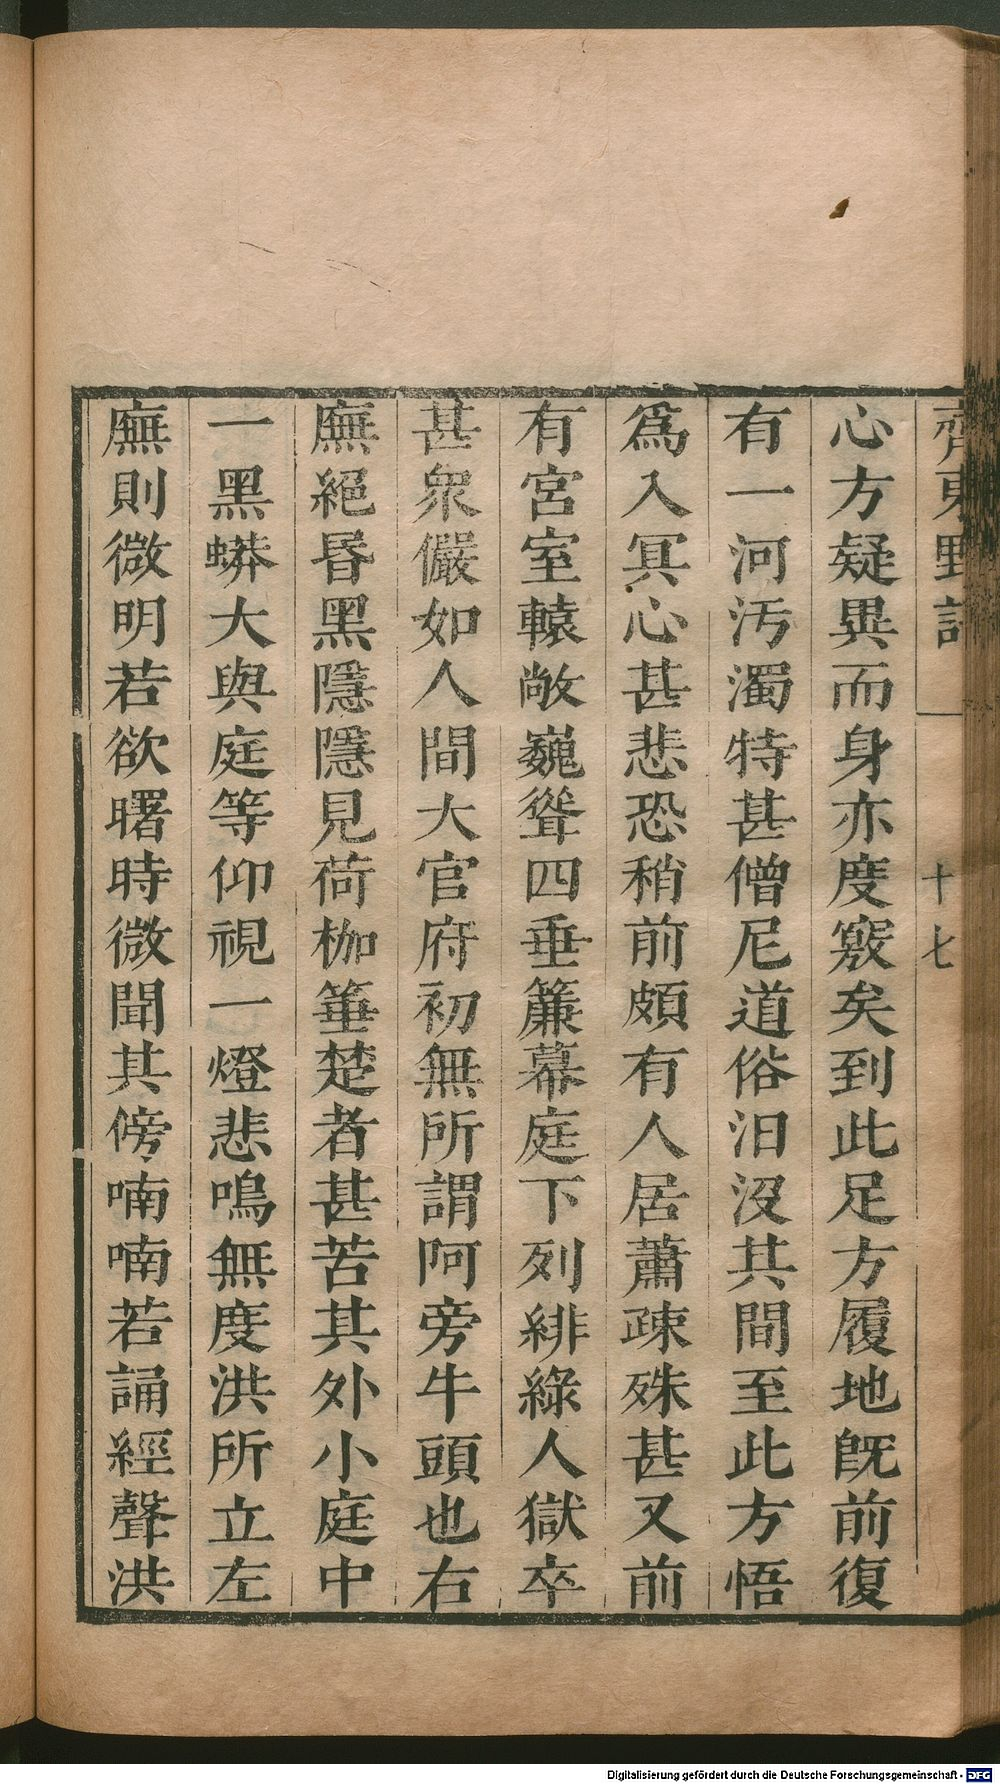 齊東野語
十七
心方疑異而身亦度竅矣到此足方履地既前復
有一河汚濁特甚僧尼道俗汨沒其間至此方悟
爲入冥心甚悲恐稍前頗有人居蕭疎殊甚又前
有宮室轅敞巍聳四垂簾幕庭下列緋綠人獄卒
甚衆儼如人間大官府初無所謂阿旁牛頭也右
廡絕昏黑隱隱見荷枷箠楚者甚苦其外小庭中
一黑蟒大與庭等仰視一燈悲鳴無度洪所立左
廡則微明若欲曙時微聞其傍喃喃若誦經聲洪
Digitalisierung gefördert durch die Deutsche Forschungsgemeinschaft - DFG